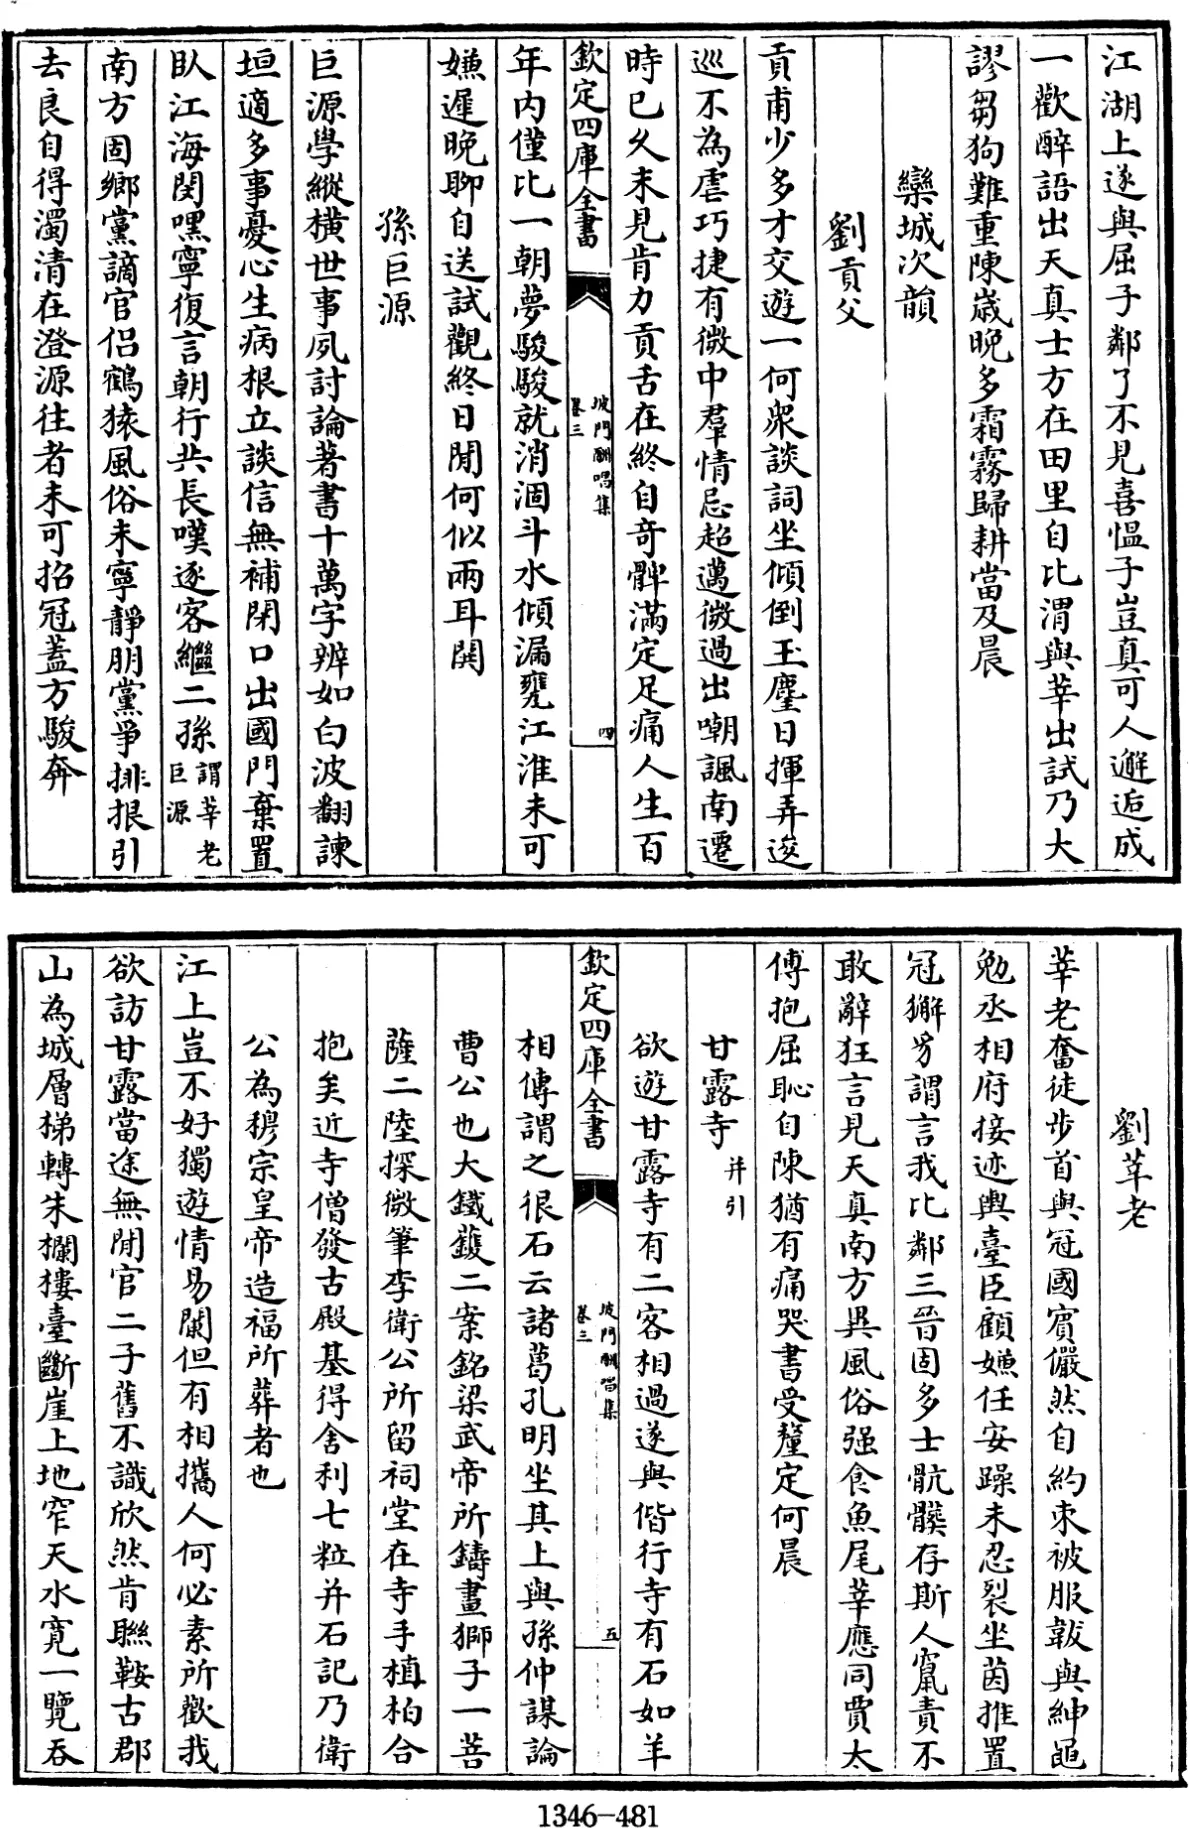 江湖上遂與屈子鄰了不見喜愠子豈真可人邂逅成
一歡醉語出天真士方在田里自比渭與莘出試乃大
謬芻狗難重陳歳晩多霜霧歸耕當及晨
欒城次韻
劉貢父
貢甫少多才交遊一何衆談詞坐傾倒玉麈日揮弄逡
巡不為虐巧捷有微中羣情忌超邁微過出嘲諷南遷
時已久未見肯力貢舌在終自奇髀滿定足痛人生百
欽定四庫全書
坡門酬唱集
卷三
四
年内僅比一朝夢駸駸就消涸斗水傾漏甕江淮未可
嫌遲晩聊自送試觀終日閒何似兩耳閧
孫巨源
巨源學縱横世事夙討論著書十萬字辨如白波翻諫
垣適多事憂心生病根立談信無補閉口出國門棄置
臥江海閔嘿寧復言朝行共長嘆逐客繼二孫謂莘老
巨源
南方固鄉黨謫官侣鶴猿風俗未寧靜朋黨爭排根引
去良自得濁清在澄源往者未可招冠蓋方駿奔
劉莘老
莘老奮徒步首與冠國賓儼然自約束被服韍與紳黽
勉丞相府接迹輿臺臣顧嫌任安躁未忍裂坐茵推置
冠獬豸謂言我比鄰三晉固多士骯髒存斯人竄責不
敢辭狂言見天真南方異風俗强食魚尾莘應同賈太
傅抱屈恥自陳猶有痛哭書受釐定何晨
甘露寺并引
欲遊甘露寺有二客相過遂與偕行寺有石如羊
欽定四庫全書
坡門酬唱集
卷三
五
相傳謂之很石云諸葛孔明坐其上與孫仲謀論
曹公也大鐵鑊二案銘梁武帝所鑄畫獅子一菩
薩二陸探微筆李衛公所留祠堂在寺手植柏合
抱矣近寺僧發古殿基得舍利七粒并石記乃衛
公為穆宗皇帝造福所葬者也
江上豈不好獨遊情易闌但有相攜人何必素所歡我
欲訪甘露當途無閒官二子舊不識欣然肯聯鞍古郡
山為城層梯轉朱欄樓臺斷崖上地窄天水寛一覽吞
1346-481